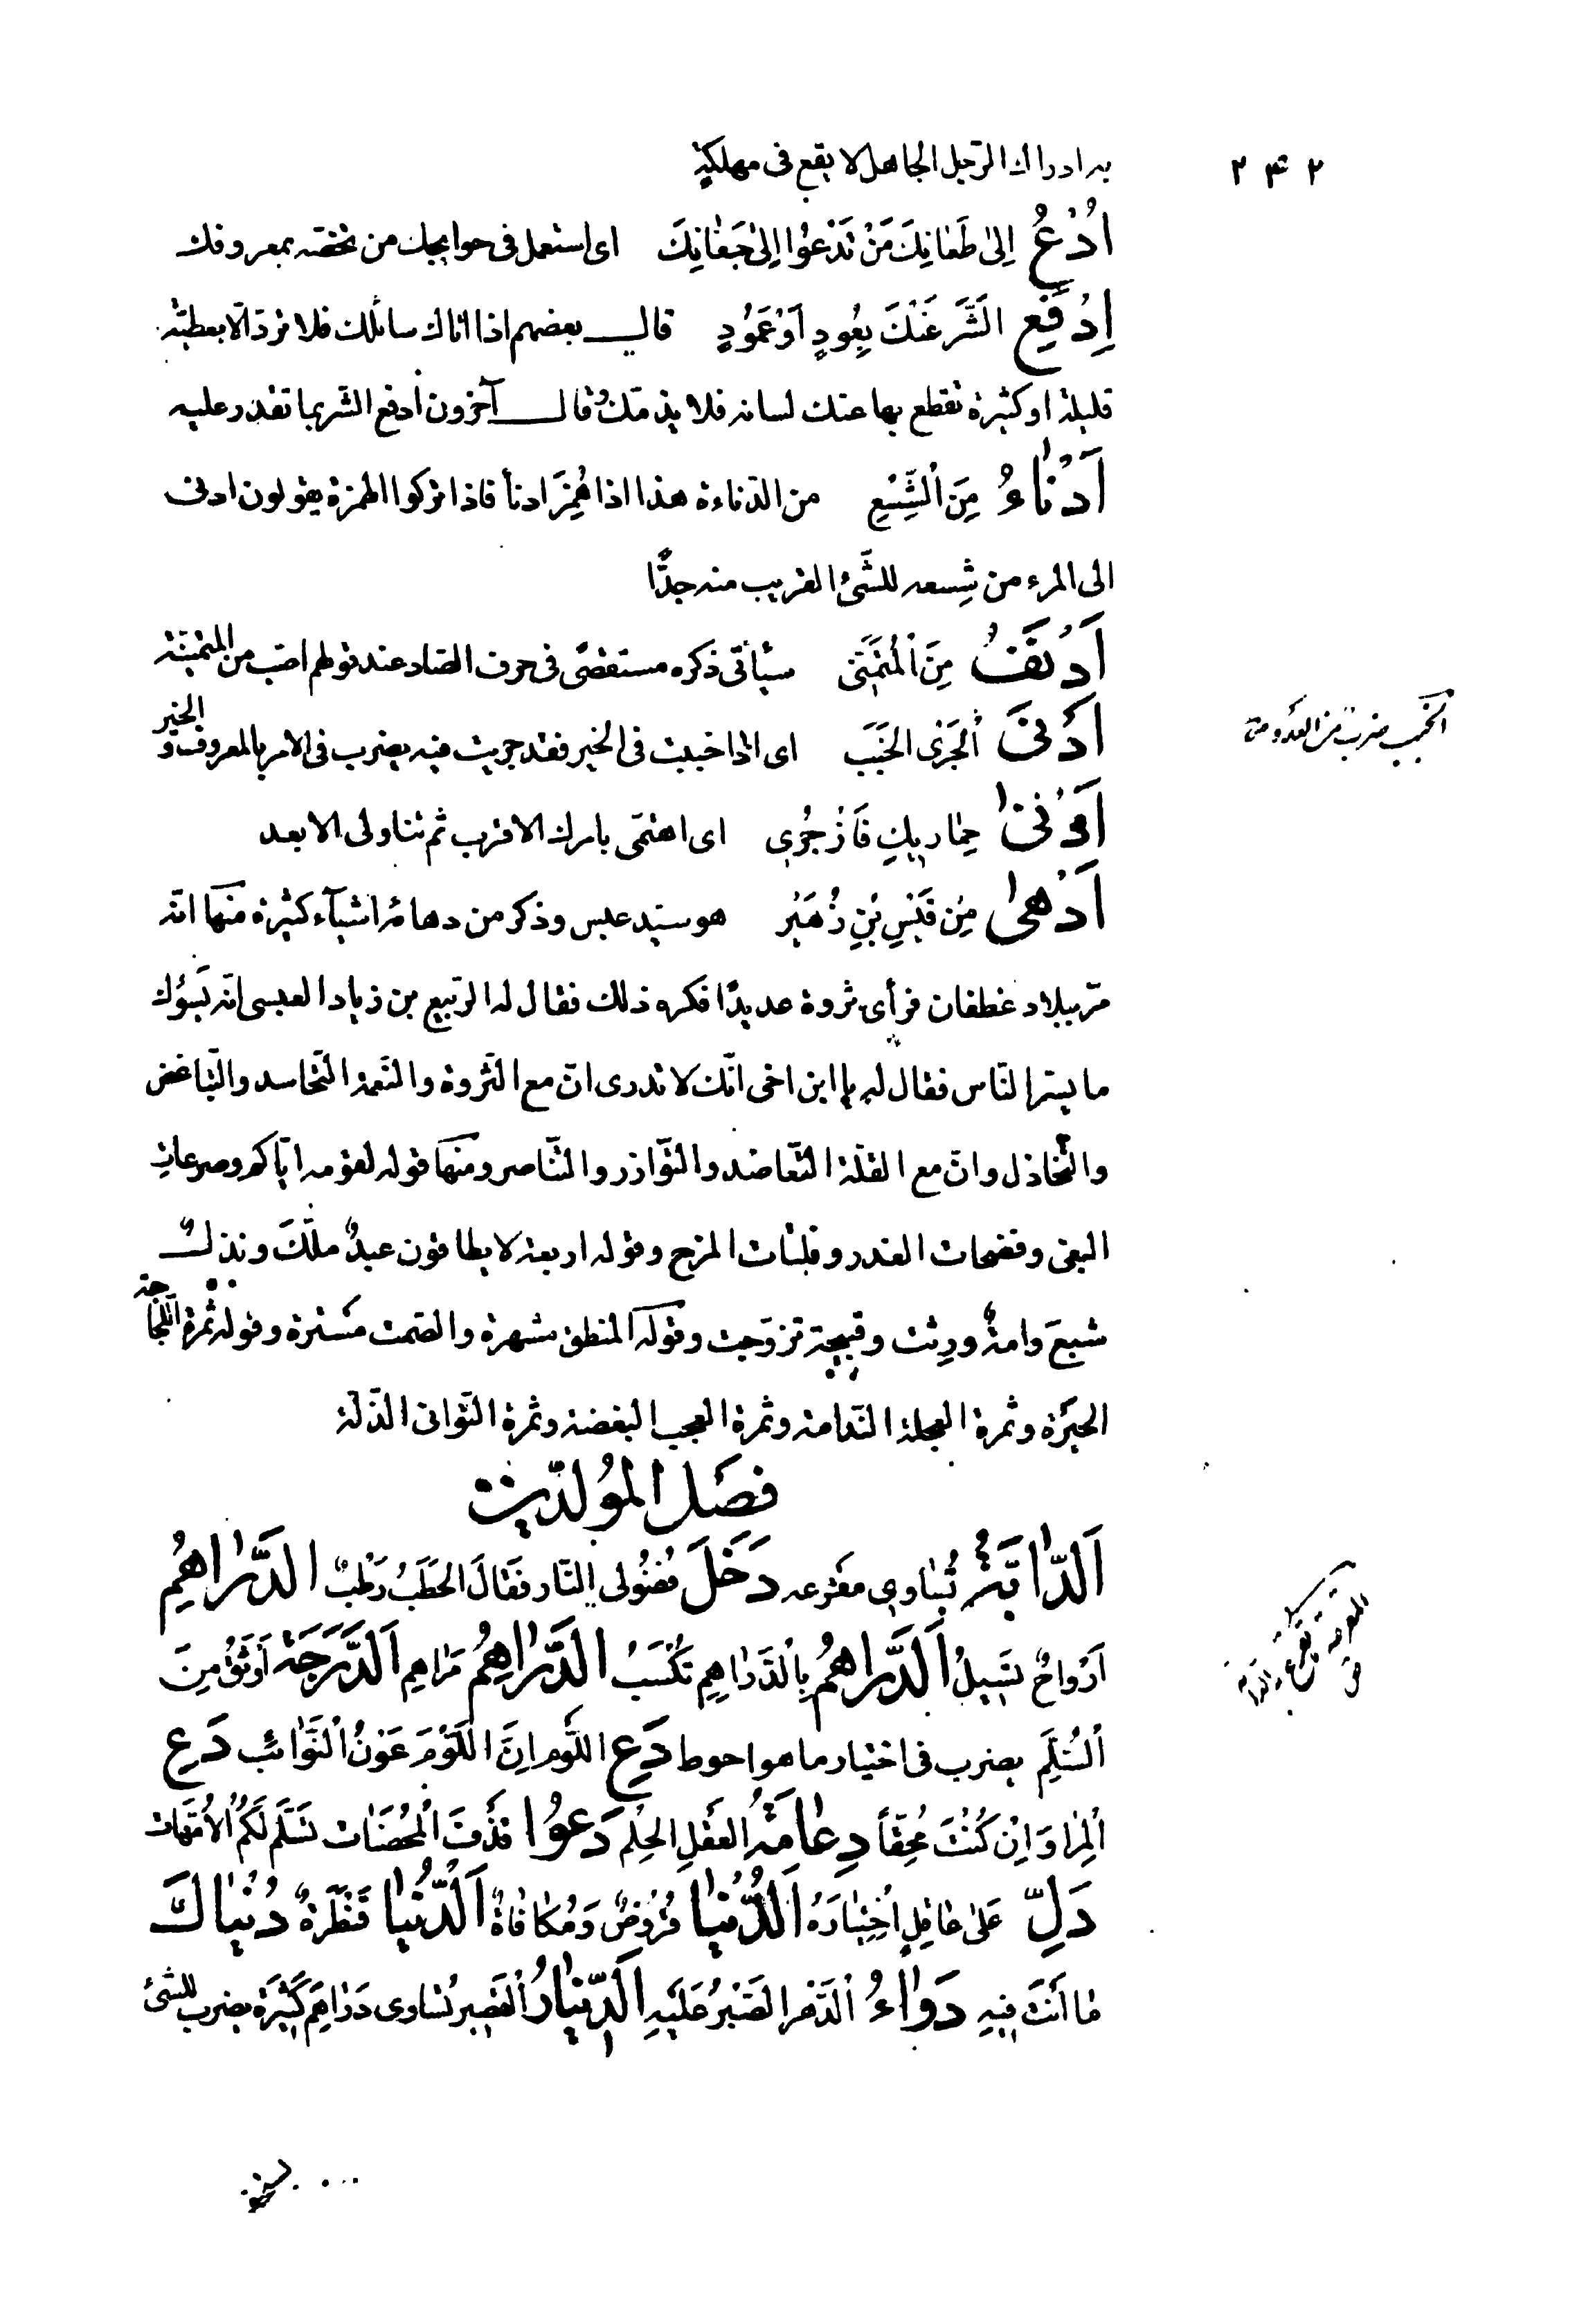 ٢٤٢
به اذ ذاك الرّجل الجاهل لا يقع فى مهلكة
اُدْعُ اِلىٰ طَعٰانِكَ مَنْ تَدْعُوا اِلىٰ جَفٰانِكَ اى استعمل فى حوايجك من تخصّه بمعروفك
اِدْفَعِ الَشَّرَ عَنْكَ بِعُودٍ اَوْعَمُودٍ قال بعضهم اذا اتاك سائلك فلا تردّ الّا بعطيّة
قليلة او كثيرة تقطع بها عنك لسانه فلا يذمّك وقال آخرون ادفع الشّر بما تقدر عليه
اَدْنٰاءُ مِنَ الْشِّسْعِ من الدّناءة هذا اذا هُمِزَ ادنأ فاذا تركوا الهمزة يقولون ادنى
الى المرء من شِسعه للشَّئ القريب منه جدًّا
اَدْنَفُ مِنَ الْمُتَمَنّى سيأتى ذكره مستقصًى فى حرف الصّاد عند قولهم اصبّ من المتمنّية
اَدْنىَ الْجَرْى الخَبَبَ اى اذا خببت فى الخير فقد جريت فيه يضرب فى الامر بالمعروف و الخير
الخبب ضرب من العَدو منه
اَدْنىٰ حِمٰاريكِ فَازْجُرى اى اهتمّى بامرك الاقرب ثم تناولى الابعد
اَدْهىٰ مِن قَيْسِ بْنِ زُهَيْر هو سيّد عبس وذكر من دهائه اشيآء كثيرة منها انّه
مرّ ببلاد غطفان فرأى ثروة عديدًا فكره ذلك فقال له الرّبيع بن زياد العبسى انّه يَسؤك
ما يسرّ النّاس فقال له يا ابن اخى انّك لا تدرى انّ مع الثّروة والنّعمة التّحاسد والتّباغض
والتّخاذل وانّ مع القلّة التّعاضد والتّوازر والتّناصر ومنها قوله لقومه ايّاكم وصرعات
البغى وفضحات الغدر وفلتات المزح وقوله اربعة لا يطاقون عبدٌ ملّكَ ونذلٌ
شبعَ وامةٌ ورثت وقبيحة تزوّجت وقوله المنطق مشهرة والصّمت مسترة وقوله ثمرة اللّجاجة
الحيرَة وثمرة العجلة النّدامة وثمرة العجب البغضة وثمرة التّوانى الذّلّة
فصَل المُولدّين
اَلدّٰابَّةُ تُسٰاوى مقرعه دَخَلَ فُضُولى النّار فَقَالَ الحَطَبُ رَطْبٌ الدَّرٰاهِمُ
اَرْوٰاحٌ تَسِيلُ اَلدَّراهِمُ بِالْدَّرٰاهِمِ تُكْسَبُ الدَّرٰاهِمُ مَرٰاهِم اَلدَّرَجَةُ اَوْثَقُ مِنَ
الْسُّلَّمِ يضرب فى اختيار ما هو احوط دَعِ اللَّوم اِنَّ اللَّوْمَ عَوْنُ الْنَّوٰائب دَعِ
الْمِرٰا وَاِنْ كُنْتَ مُحِقّاً دِعٰامَةُ العَقلِ الحِلم دَعوُا قَذفَ الْمُحْصَنٰات تَسْلَم لَكُمُ الاُمّهات
دَلِّ عَلىٰ عٰاقِلٍ اخْتِيٰارُهُ اَلدُّنْيٰا قُرُوضٌ وَمُكٰافٰاةٌ اَلْدُّنْيٰا قَنْطَرَةٌ دُنْيٰاكَ
مٰا اَنْتَ فِيهِ دَوٰاءُ الْدَّهْر الصَّبْرُ عَلَيْهِ اَلدّينٰارُ الْقَصِير يُسٰاوى دَرٰاهِمَ كَثيرَة يضرب للشّئ